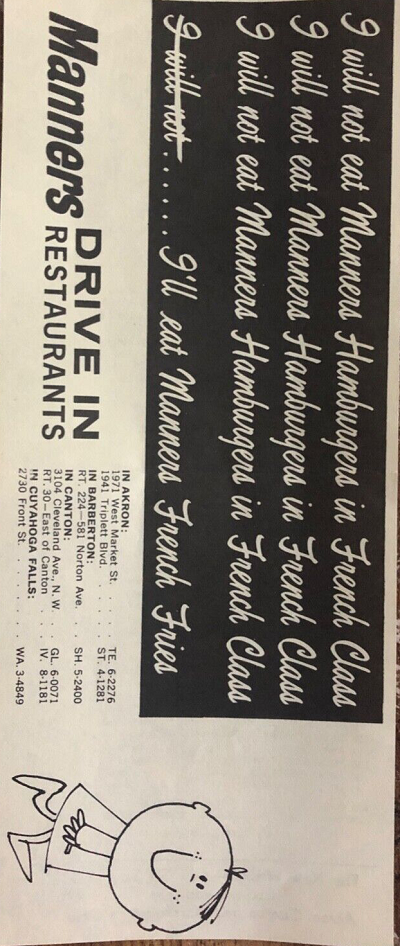 I will not eat Manners Hamburgers in French Class
I will not eat Manners Hamburgers in French Class
I will not eat Manners Hamburgers in French Class
I will not . . . . . . I'll eat Manners French Fries
Manners DRIVE IN
RESTAURANTS
IN AKRON:
1971 West Market St. . . . . TE. 6-2276
1941 Triplett Blvd. . . . . ST. 4-1281
IN BARBERTON:
RT. 224—581 Norton Ave. . . SH. 5-2400
IN CANTON:
3104 Cleveland Ave., N. W. . . GL. 6-0071
RT. 30—East of Canton . . . IV. 8-1181
IN CUYAHOGA FALLS:
2730 Front St. . . . . . . WA. 3-4849